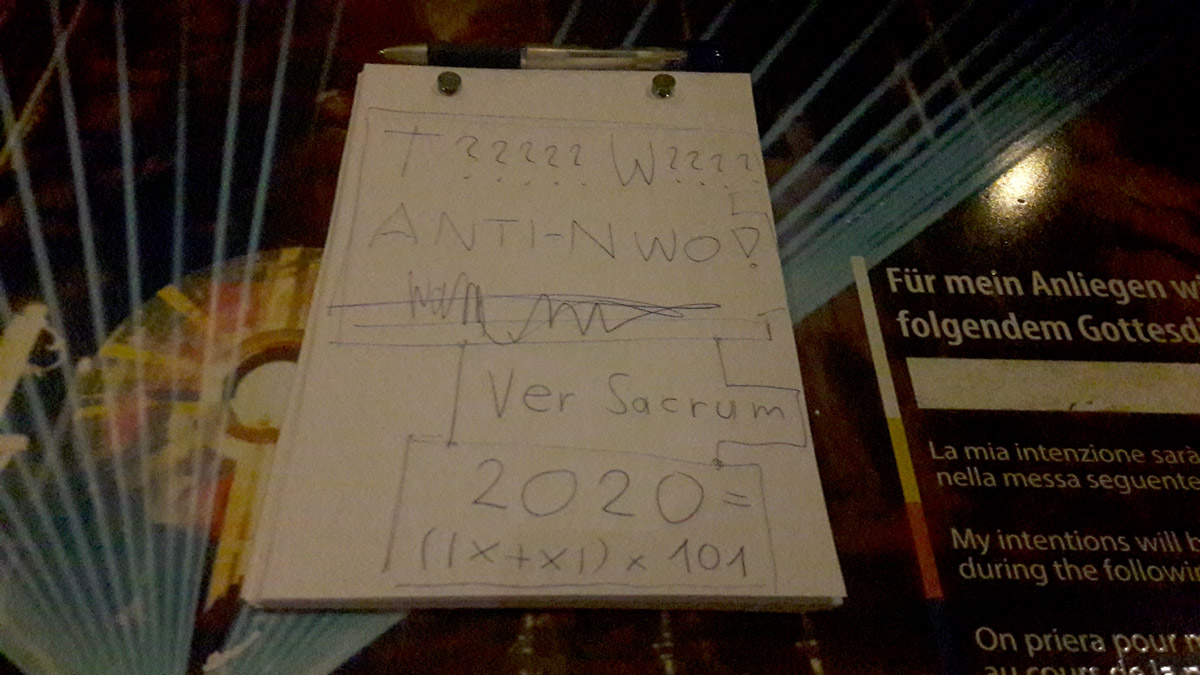 T ????? W????
ANTI-NWO!
Ver Sacrum
2020=
(IX+XI)x101
Für mein Anliegen
folgendem
La mia intenzione sarà
nella messa seguente
My intentions will
during the
On priera pour
au cours de la